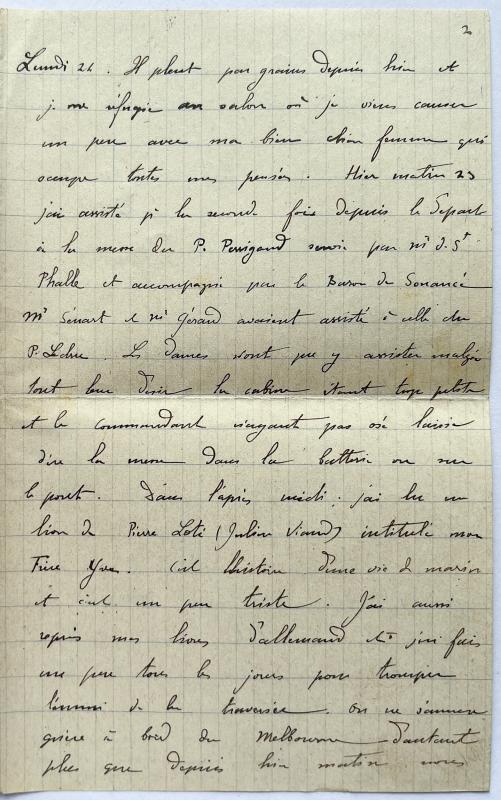 2
Lundi 24. Il pleut par grains depuis hier et
je me réfugie au salon où je viens causer
un peu avec ma bien chère femme qui
occupe toutes mes pensées. Hier matin 23
j'ai assisté pr la seconde fois depuis le départ
à la messe du P. Perrigaud servie par Mr de St
Phalle et accompagnée par le Baron de Sonancé
Mr Sénart et Mr Gérard avaient assisté à celle du
P. Lebre. Les dames n'ont pu y assister malgré
tout leur désir la cabine étant trop petite
et le commandant n'ayant pas osé laisser
dire la messe dans la batterie ou sur
le pont. Dans l'après midi j'ai lu un
livre de Pierre Loti (Julien Viaud) intitulé mon
Frère Yves. C'est l'histoire d'une vie de marin
et c'est un peu triste. J'ai aussi
repris mes livres d'allemand et j'en fais
un peu tous les jours pour tromper
l'ennui de la traversée. On ne s'amuse
guère à bord du Melbourne d'autant
plus que depuis hier matin nous